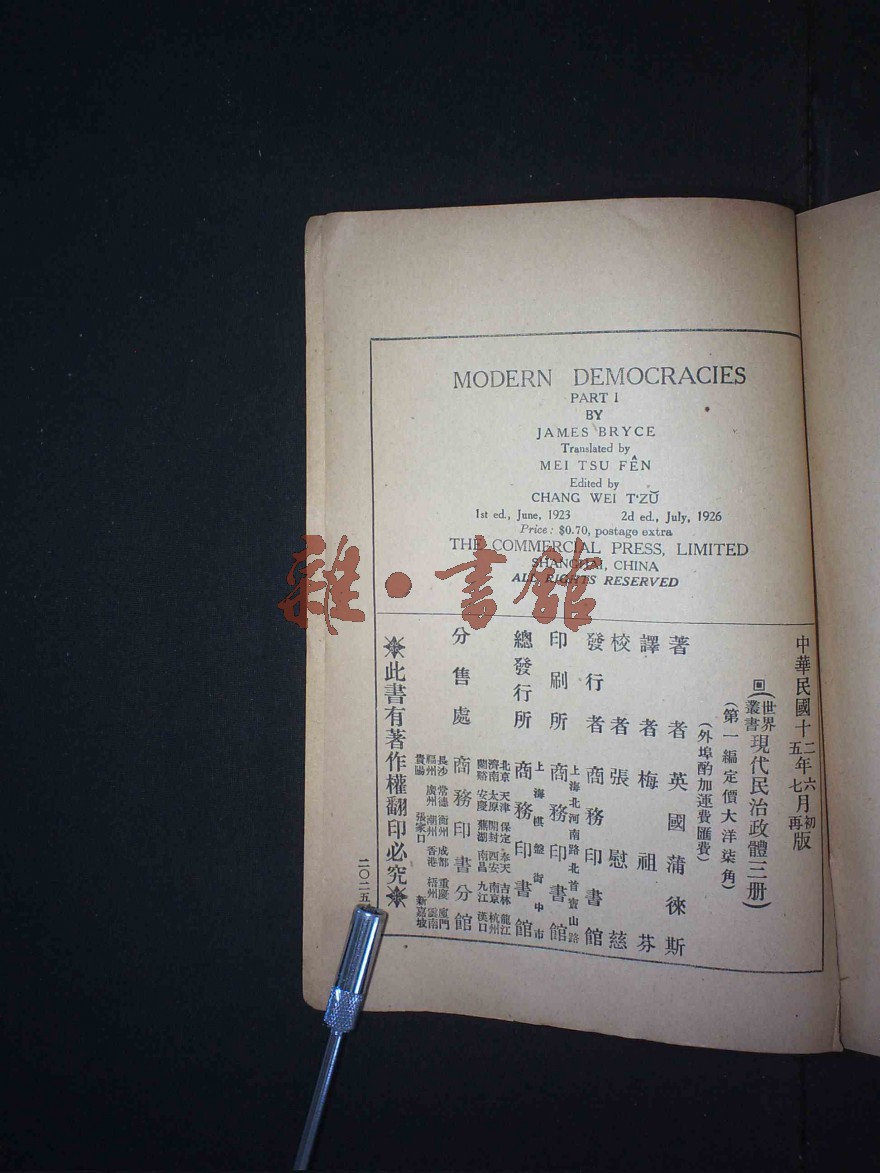 MODERN DEMOCRACIES
PART I
BY
JAMES BRYCE
Translated by
MEI TSU FÊN
Edited by
CHANG WEI T'ZŬ
1st ed., June, 1923 2d ed., July, 1926
Price: $0.70, postage extra
THE COMMERCIAL PRESS, LIMITED
SHANGHAI, CHINA
ALL RIGHTS RESERVED
中華民國十二年六月初版
五年七月再版
(世界叢書 現代民治政體三册)
(第一編定價大洋柒角)
(外埠酌加運費匯費)
著者 英國蒲徠斯
譯者 梅祖芬
校者 張慰慈
發行者 商務印書館
印刷所 上海北河南路北首寶山路 商務印書館
總發行所 上海棋盤街中市 商務印書館
分售處 商務印書分館
北京 天津 保定 奉天 吉林 龍江
濟南 太原 開封 西安 南京 杭州
蘭谿 安慶 蕪湖 南昌 九江 漢口
長沙 常德 衡州 成都 重慶 廈門
福州 廣州 潮州 香港 梧州 雲南
貴陽 張家口 新嘉坡
此書有著作權翻印必究
二〇二五
雜·書館